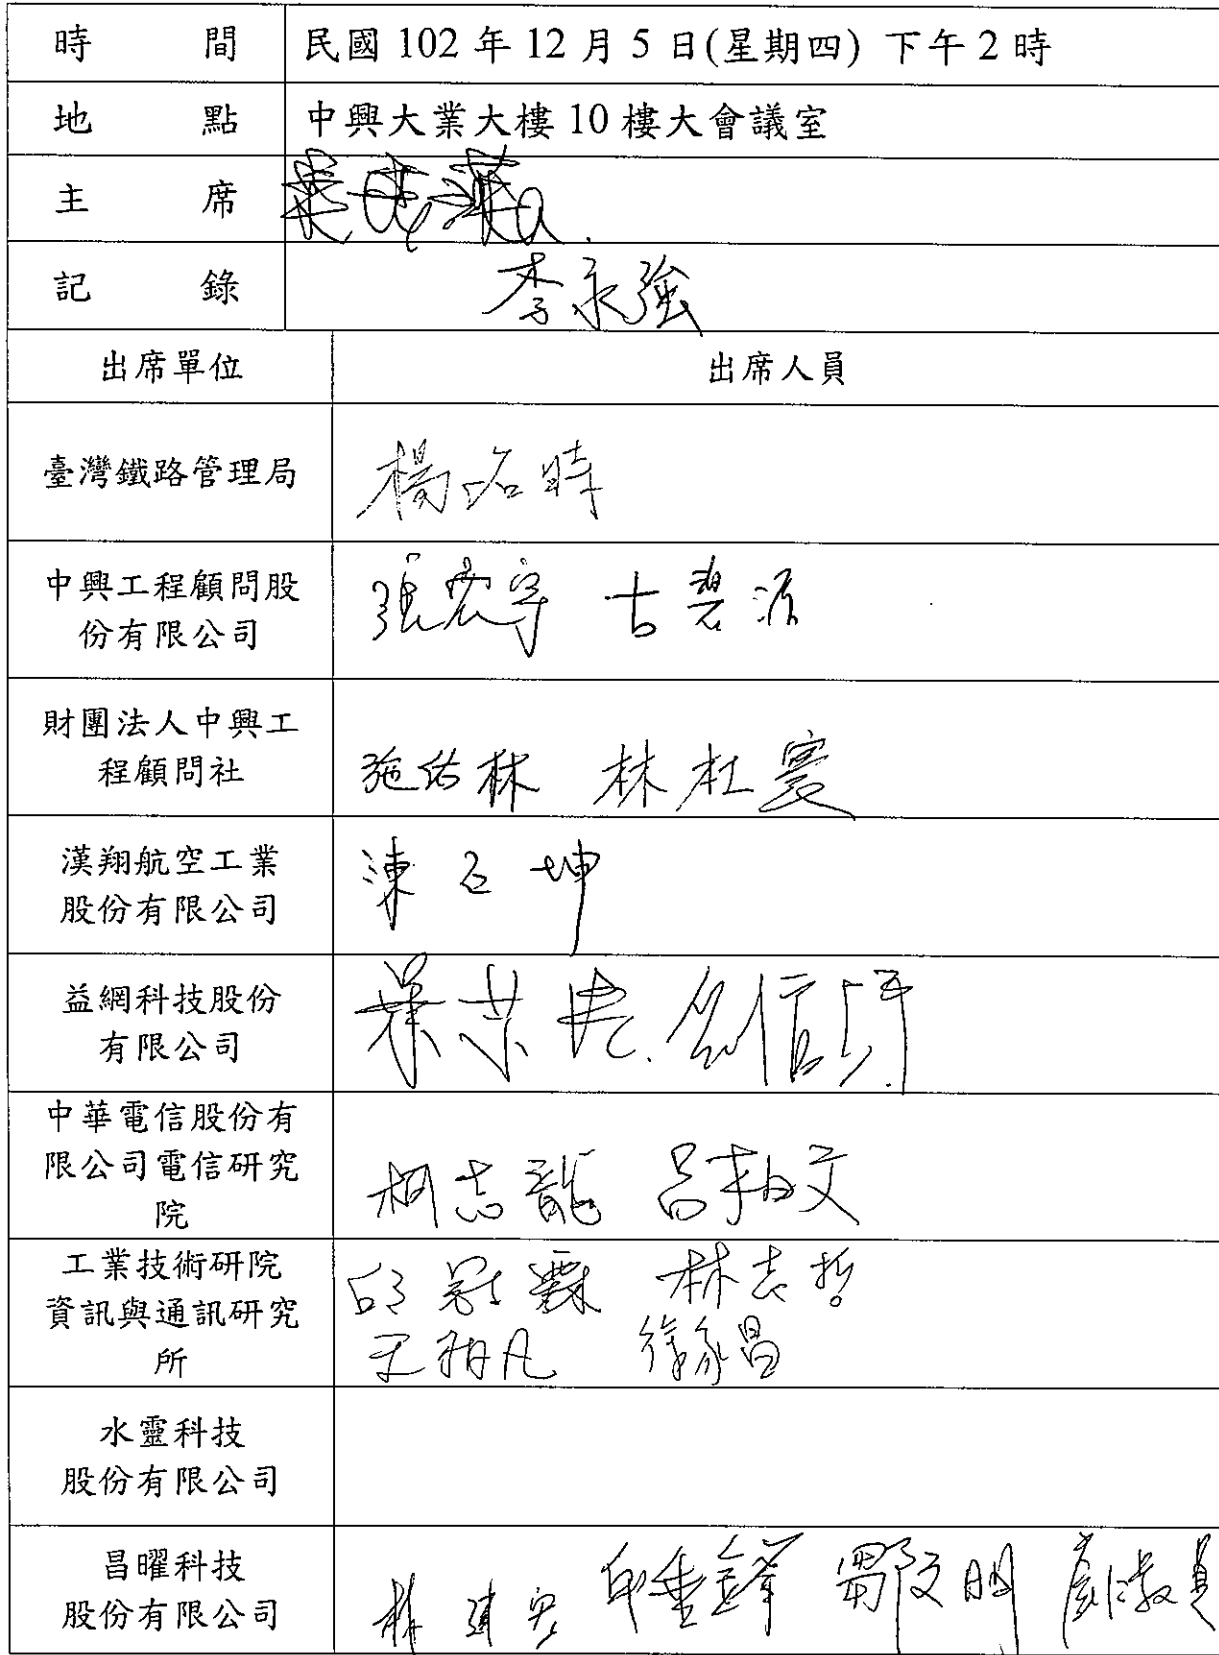 時 間 民國 102 年 12 月 5 日(星期四) 下午 2 時
地 點 中興大業大樓 10 樓大會議室
主 席
記 錄 李永強
出席單位 出席人員
臺灣鐵路管理局 楊 時
中興工程顧問股
份有限公司
張宏宇 古碧源
財團法人中興工
程顧問社
施佑林 林杜寰
漢翔航空工業
股份有限公司
陳 坤
益網科技股份
有限公司
葉
中華電信股份有
限公司電信研究
院
柯志龍 呂柏文
工業技術研究院
資訊與通訊研究
所
邱冠霖 林志哲
凡 徐家昌
水靈科技
股份有限公司
昌曜科技
股份有限公司
林建宏 鄒文明